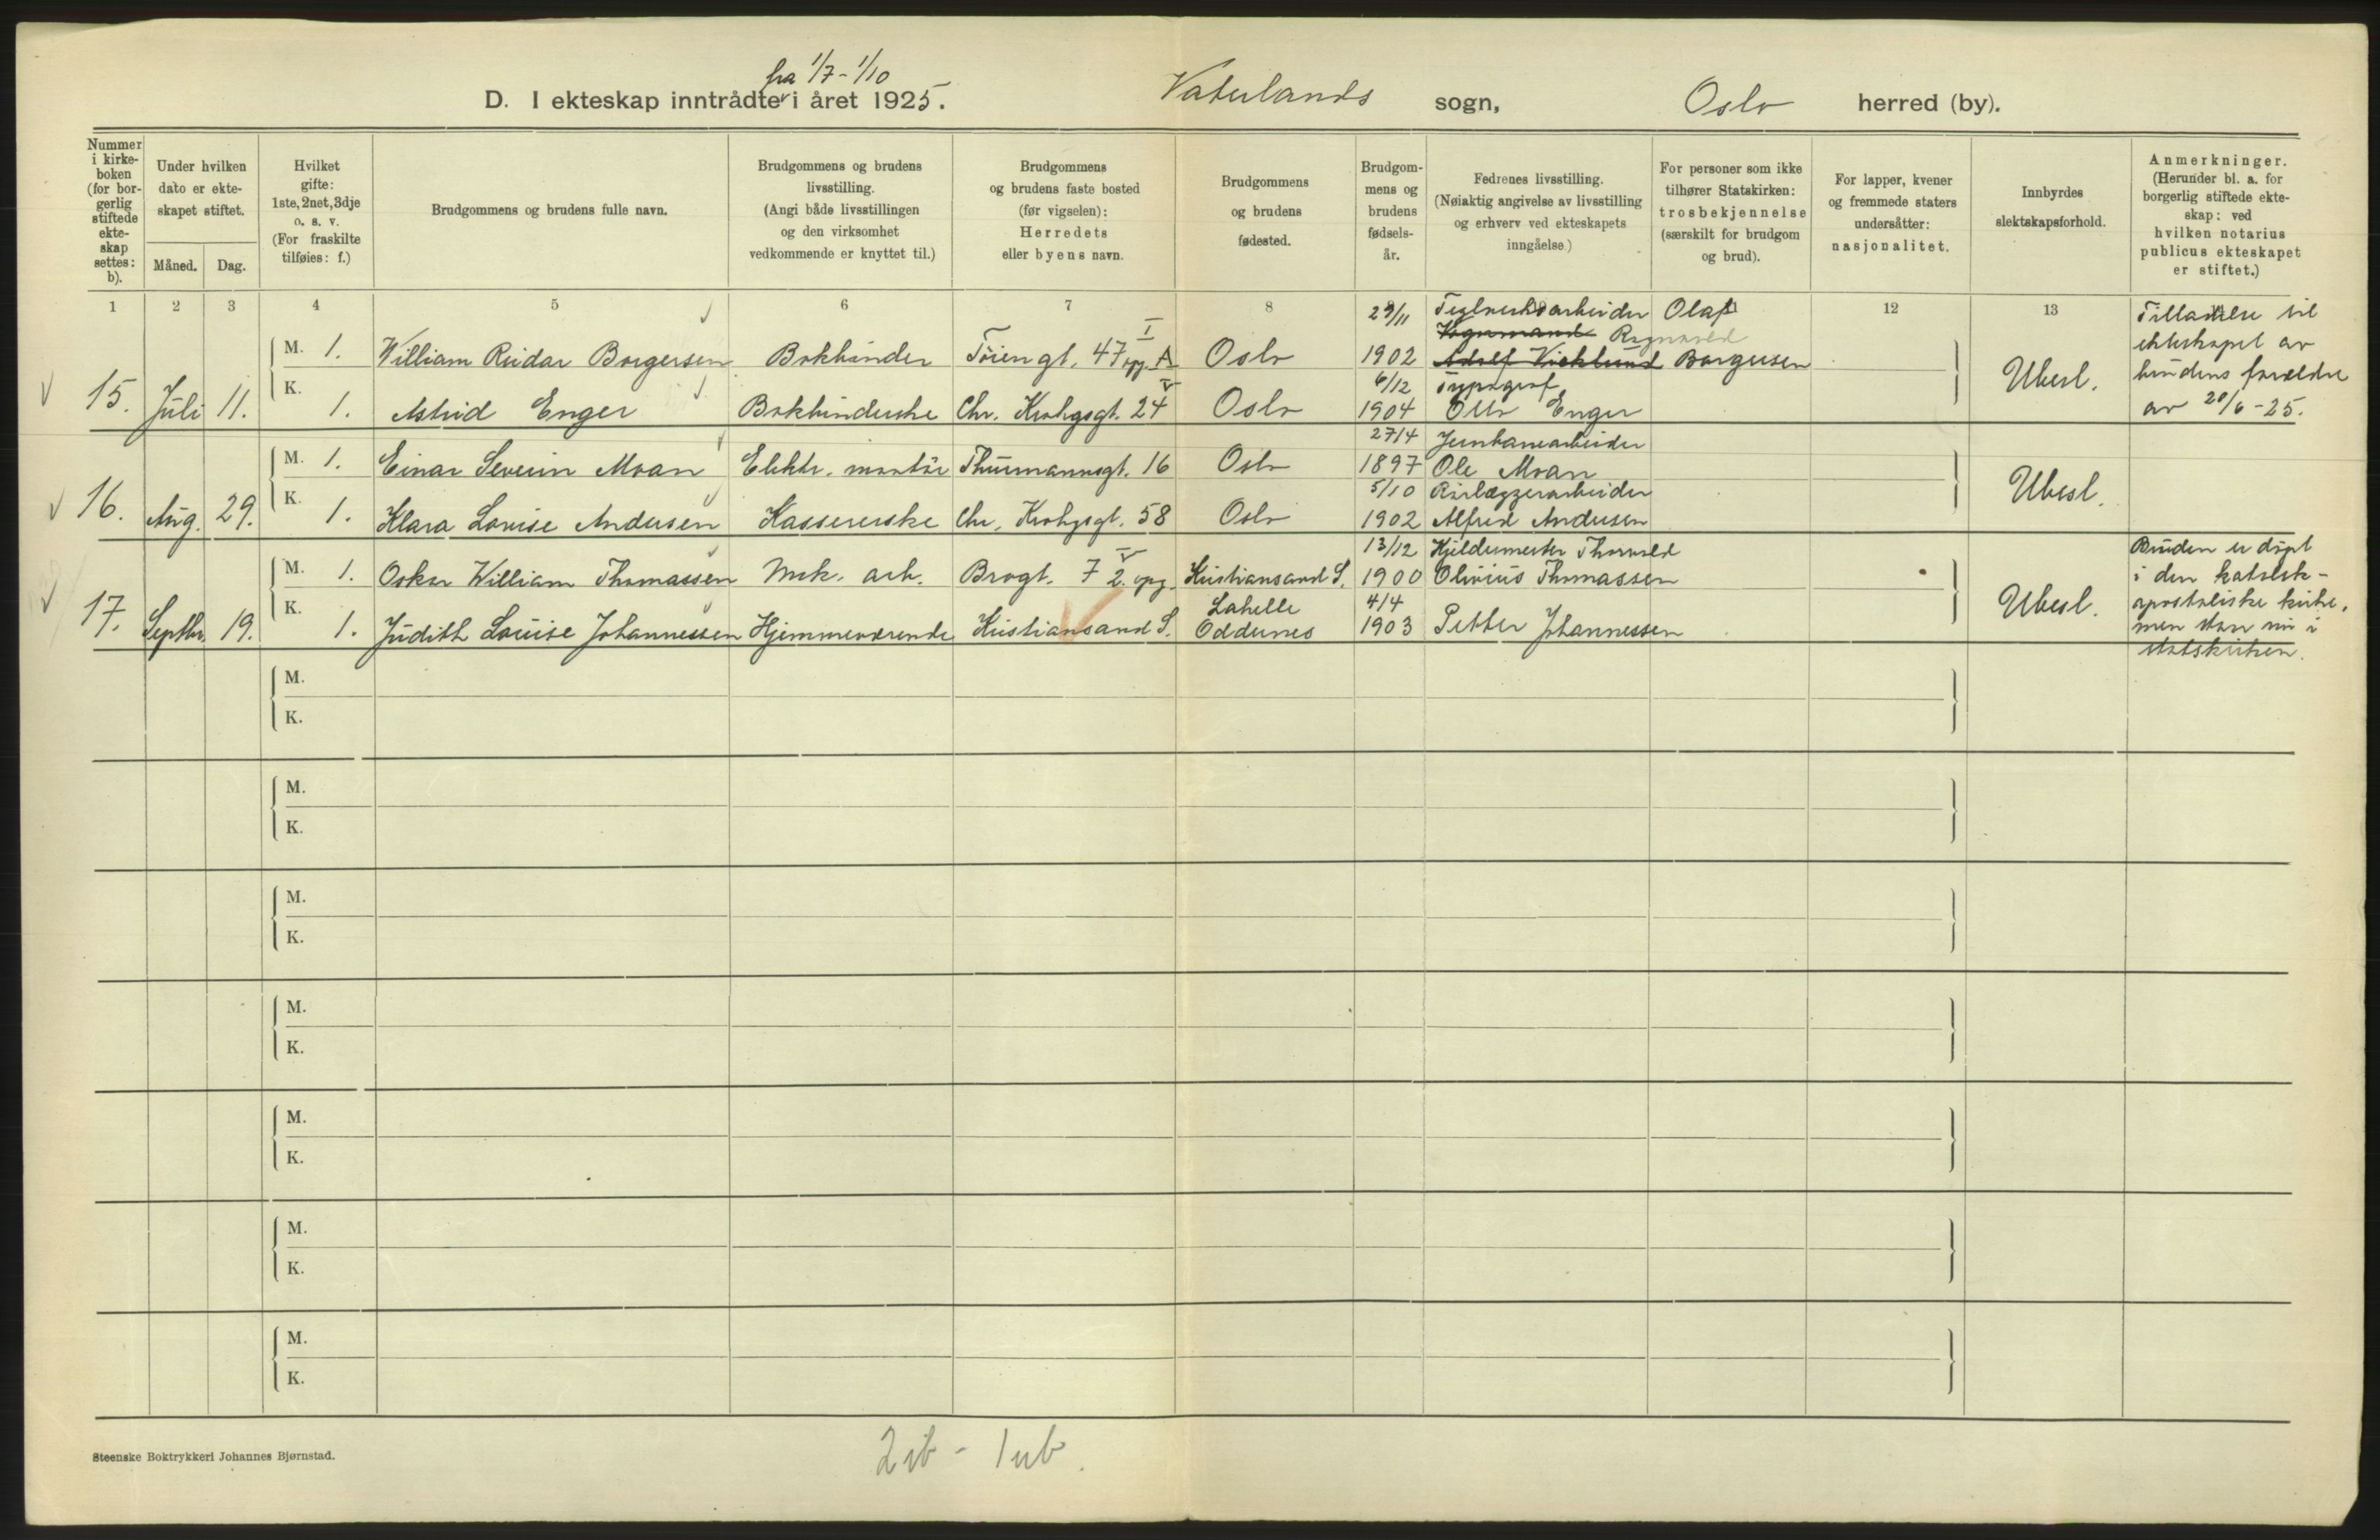 fra 1/7 - 1/10
D. I ekteskap inntrådte i året 1925. Vaterlands sogn, Oslo herred (by).
Nummer i kirke-boken (for bor-gerlig stiftede ekte-skap settes: b).
Under hvilken dato er ekte-skapet stiftet.
Måned. Dag.
Hvilket gifte: 1ste, 2net, 3dje o. s. v. (For fraskilte tilføies: f.)
Brudgommens og brudens fulle navn.
Brudgommens og brudens livsstilling. (Angi både livsstillingen og den virksomhet vedkommende er knyttet til.)
Brudgommens og brudens faste bosted (før vigselen): Herredets eller byens navn.
Brudgommens og brudens fødested.
Brudgom-mens og brudens fødsels-år.
Fedrenes livsstilling. (Nøiaktig angivelse av livsstilling og erhverv ved ekteskapets inngåelse.)
For personer som ikke tilhører Statskirken: trosbekjennelse (særskilt for brudgom og brud).
For lapper, kvener og fremmede staters undersåtter: nasjonalitet.
Innbyrdes slektskapsforhold.
Anmerkninger. (Herunder bl. a. for borgerlig stiftede ekte-skap: ved hvilken notarius publicus ekteskapet er stiftet.)
1 2 3 4 5 6 7 8 12 13
15. Juli 11.
M. 1. William Reidar Borgersen Bokbinder Töiengt. 47 I opg. A Oslo 29/11 1902 Teglverksarbeider Olaf Ragnvald Borgersen
Vognmand Adolf Vicklund
K. 1. Astrid Enger Bokbinderske Chr. Krohgsgt. 24 V Oslo 6/12 1904 Typograf Otto Enger
Ubesl.
Tilladelse til
ekteskapet av
brudens forældre
av 20/6-25.
16. Aug. 29.
M. 1. Einar Severin Moan Elektr. montör Thurmannsgt. 16 Oslo 27/4 1897 Jernbanearbeider Ole Moan
K. 1. Klara Lovise Andersen Kassererske Chr. Krohgsgt. 58 Oslo 5/10 1902 Rörlæggerarbeider Alfred Andersen
Ubesl.
17. Septbr. 19.
M. 1. Oskar William Thomassen Mek. arb. Brogt. 7 V 2. opg. Kristiansand S. 13/12 1900 Kjeldermester Thorvald Olivius Thomassen
K. 1. Judith Louise Johannessen Hjemmeværende Kristiansand S. Lahelle Oddernes 4/4 1903 Petter Johannessen
Ubesl.
Bruden er döpt
i den katolsk-
apostoliske kirke,
men staar nu i
statskirken.
M.
K.
M.
K.
M.
K.
M.
K.
M.
K.
M.
K.
M.
K.
Steenske Boktrykkeri Johannes Bjørnstad.
2 ib - 1 ub.